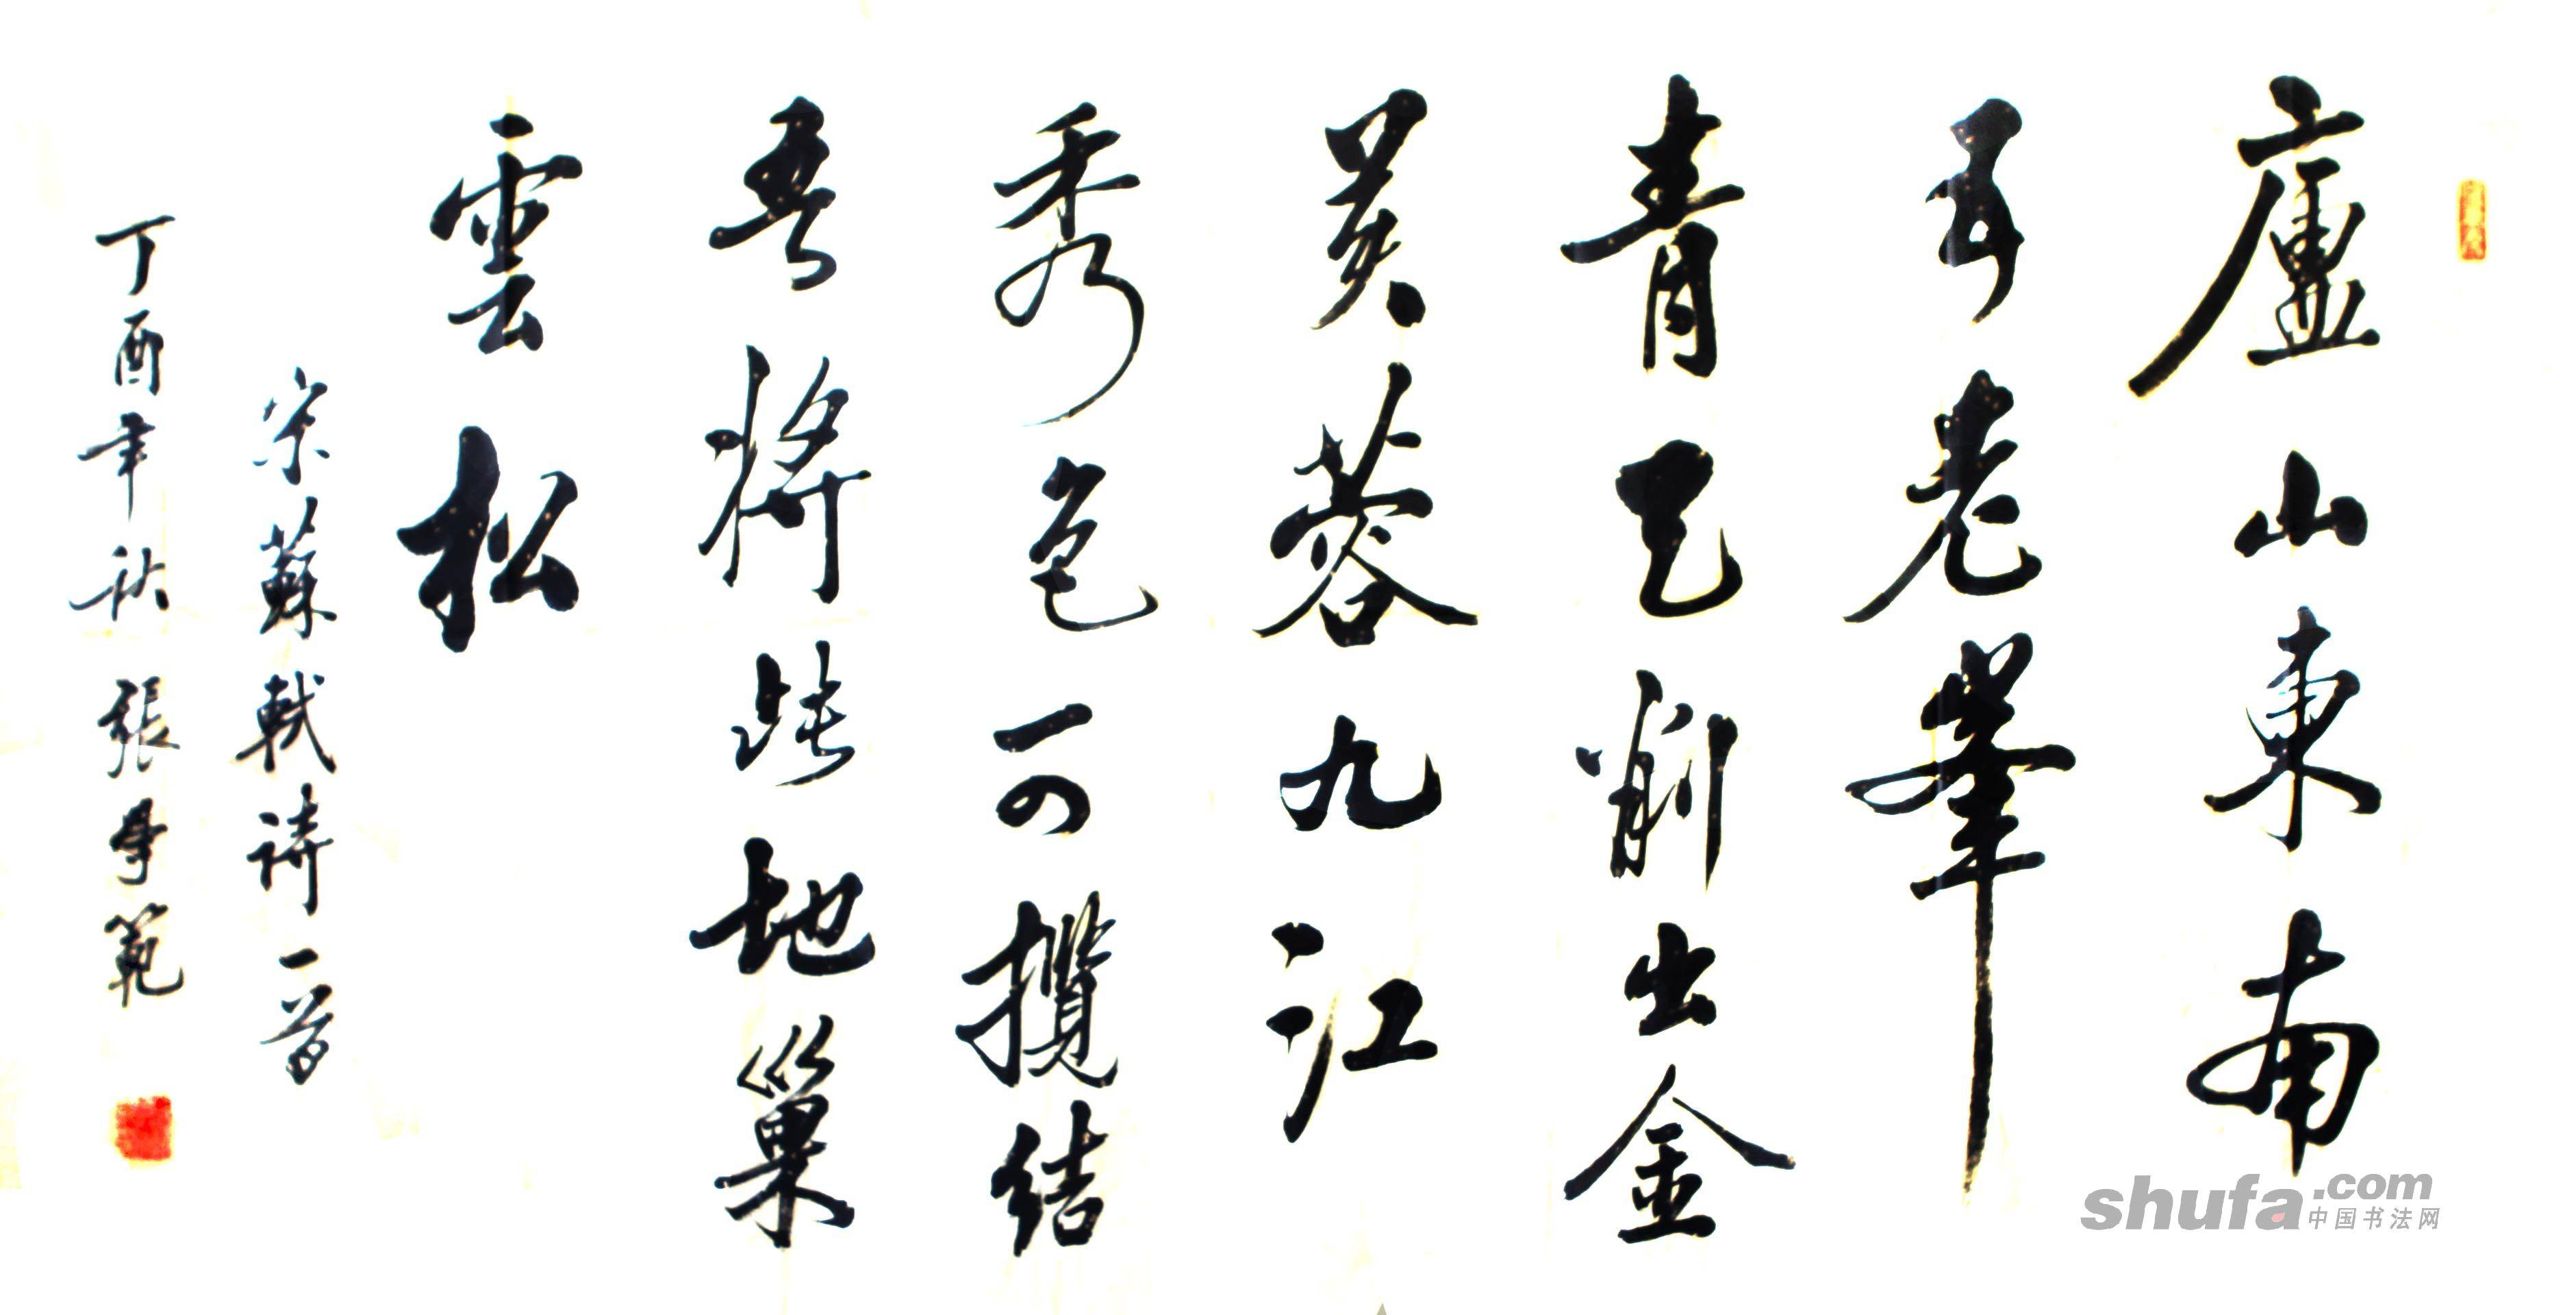 廬山東南
五老峯
青天削出金
芙蓉九江
秀色可攬結
吾將此地巢
雲松
宋蘇軾詩一首
丁酉年秋張學範
shufa.com
中国书法网